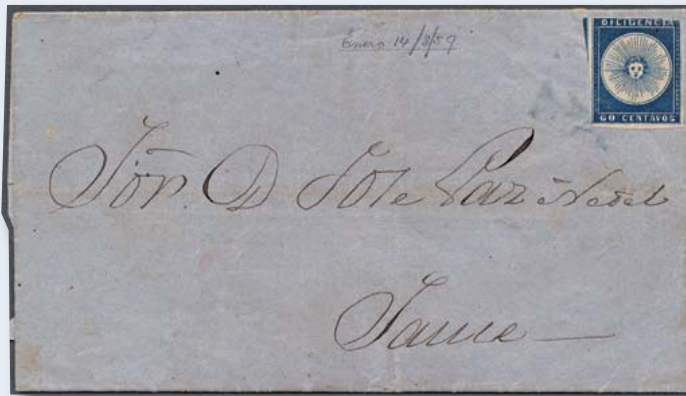 Enero 14/859
DILIGENCIA
60 CENTAVOS
Sōr. D Jose Paz Nadal
Sauce